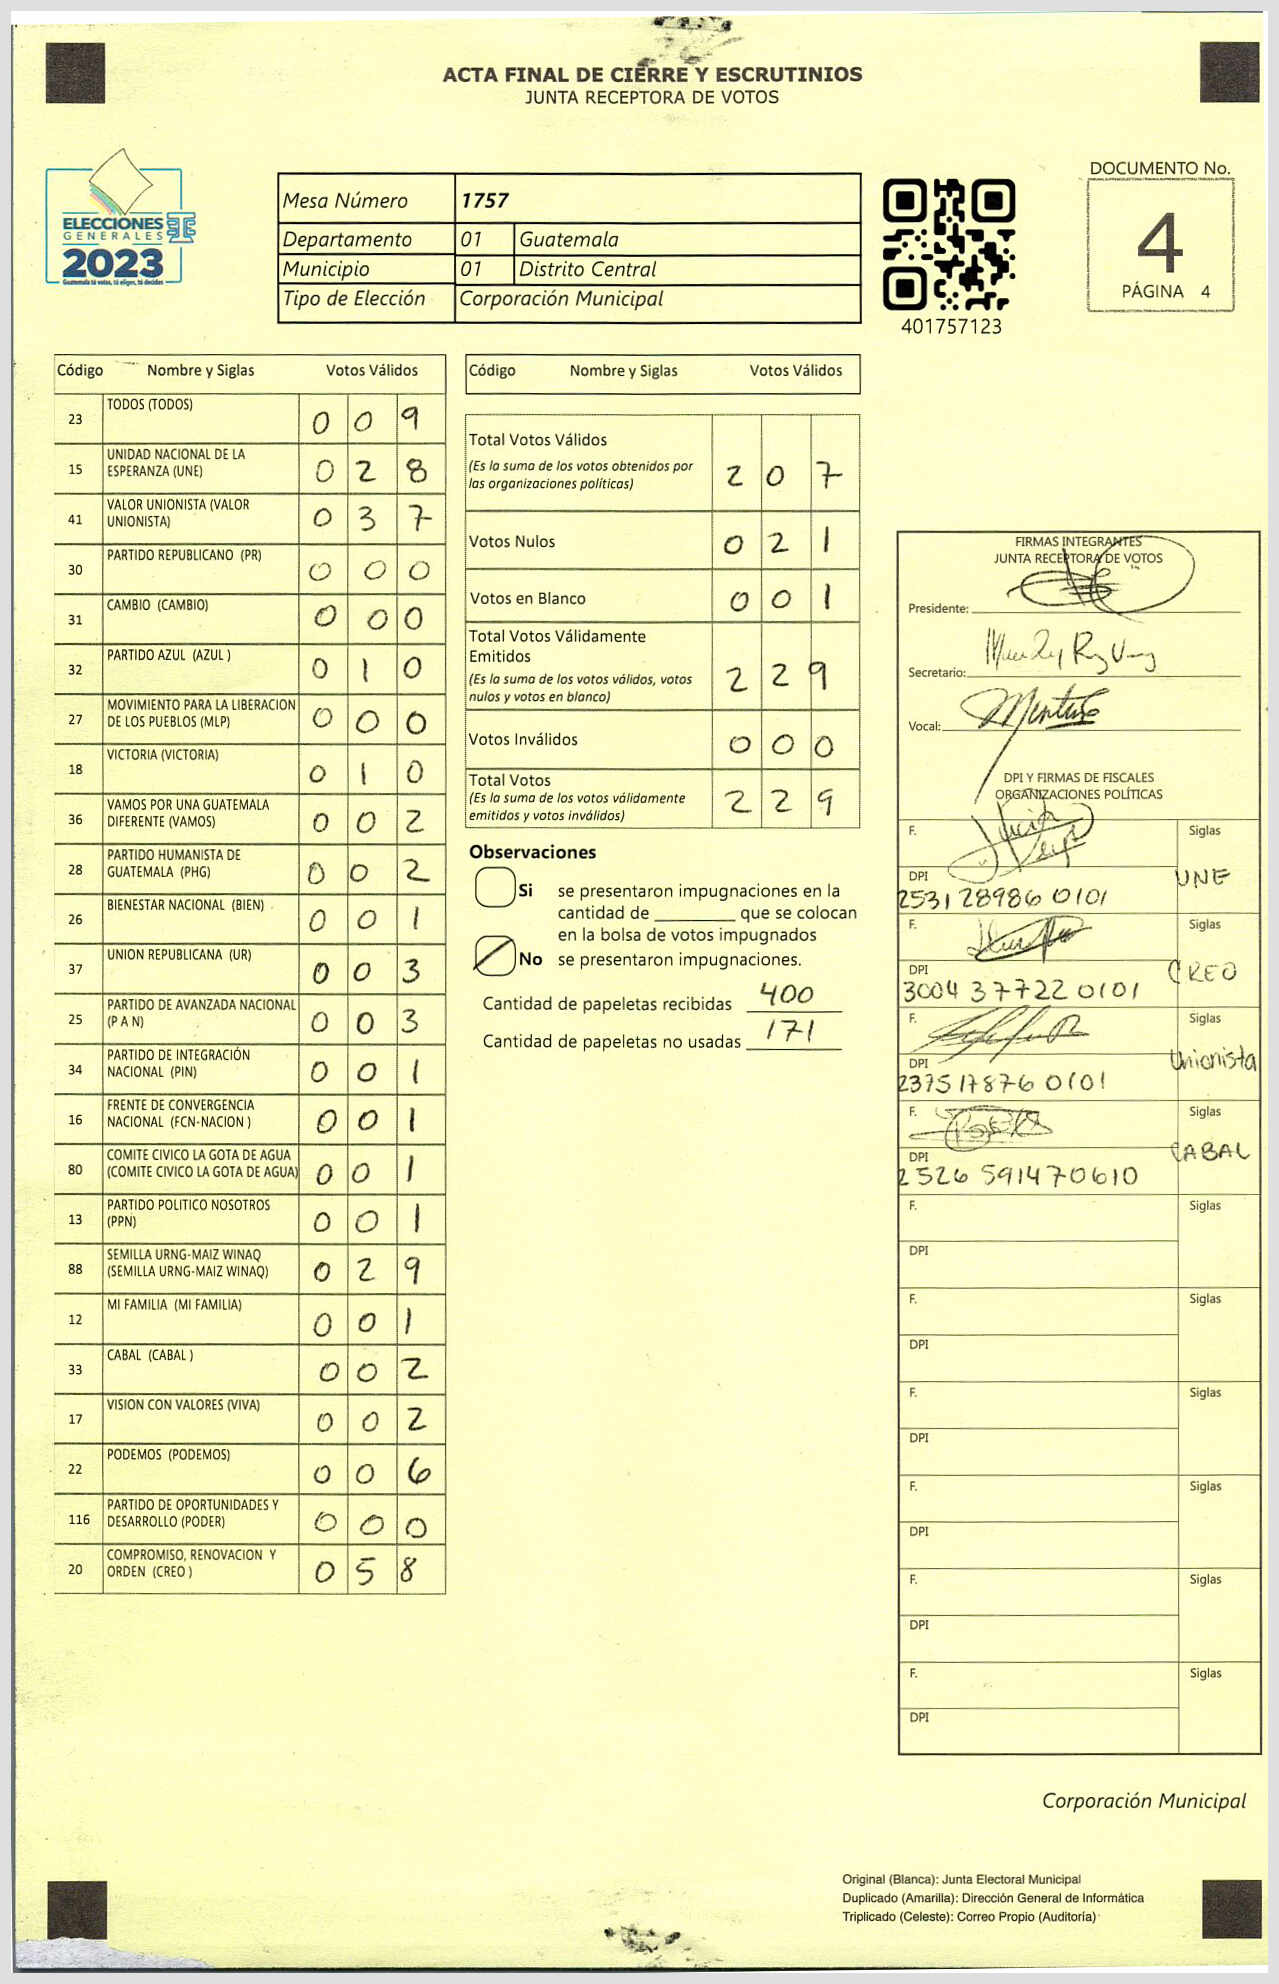 ACTA FINAL DE CIERRE Y ESCRUTINIOS
JUNTA RECEPTORA DE VOTOS
ELECCIONES
GENERALES
2023
Guatemala tú votas, tú eliges, tú decides
Mesa Número 1757
Departamento 01 Guatemala
Municipio 01 Distrito Central
Tipo de Elección Corporación Municipal
401757123
DOCUMENTO No.
4
PÁGINA 4
Código Nombre y Siglas Votos Válidos
23 TODOS (TODOS) 0 0 9
15 UNIDAD NACIONAL DE LA ESPERANZA (UNE) 0 2 8
41 VALOR UNIONISTA (VALOR UNIONISTA) 0 3 7
30 PARTIDO REPUBLICANO (PR) 0 0 0
31 CAMBIO (CAMBIO) 0 0 0
32 PARTIDO AZUL (AZUL ) 0 1 0
27 MOVIMIENTO PARA LA LIBERACION DE LOS PUEBLOS (MLP) 0 0 0
18 VICTORIA (VICTORIA) 0 1 0
36 VAMOS POR UNA GUATEMALA DIFERENTE (VAMOS) 0 0 2
28 PARTIDO HUMANISTA DE GUATEMALA (PHG) 0 0 2
26 BIENESTAR NACIONAL (BIEN) 0 0 1
37 UNION REPUBLICANA (UR) 0 0 3
25 PARTIDO DE AVANZADA NACIONAL (P A N) 0 0 3
34 PARTIDO DE INTEGRACIÓN NACIONAL (PIN) 0 0 1
16 FRENTE DE CONVERGENCIA NACIONAL (FCN-NACION ) 0 0 1
80 COMITE CIVICO LA GOTA DE AGUA (COMITE CIVICO LA GOTA DE AGUA) 0 0 1
13 PARTIDO POLITICO NOSOTROS (PPN) 0 0 1
88 SEMILLA URNG-MAIZ WINAQ (SEMILLA URNG-MAIZ WINAQ) 0 2 9
12 MI FAMILIA (MI FAMILIA) 0 0 1
33 CABAL (CABAL ) 0 0 2
17 VISION CON VALORES (VIVA) 0 0 2
22 PODEMOS (PODEMOS) 0 0 6
116 PARTIDO DE OPORTUNIDADES Y DESARROLLO (PODER) 0 0 0
20 COMPROMISO, RENOVACION Y ORDEN (CREO ) 0 5 8
Código Nombre y Siglas Votos Válidos
Total Votos Válidos 2 0 7
(Es la suma de los votos obtenidos por
las organizaciones políticas)
Votos Nulos 0 2 1
Votos en Blanco 0 0 1
Total Votos Válidamente
Emitidos 2 2 9
(Es la suma de los votos válidos, votos
nulos y votos en blanco)
Votos Inválidos 0 0 0
Total Votos 2 2 9
(Es la suma de los votos válidamente
emitidos y votos inválidos)
Observaciones
Si se presentaron impugnaciones en la
cantidad de ________ que se colocan
en la bolsa de votos impugnados
No se presentaron impugnaciones.
Cantidad de papeletas recibidas 400
Cantidad de papeletas no usadas 171
FIRMAS INTEGRANTES
JUNTA RECEPTORA DE VOTOS
Presidente:
Secretario:
Vocal:
DPI Y FIRMAS DE FISCALES
ORGANIZACIONES POLÍTICAS
F. Siglas
DPI UNE
2531 28986 0101
F. Siglas
DPI CREO
3004 37722 0101
F. Siglas
DPI Unionista
2375 17876 0101
F. Siglas
DPI CABAL
2526 59147 0610
F. Siglas
DPI
F. Siglas
DPI
F. Siglas
DPI
F. Siglas
DPI
F. Siglas
DPI
F. Siglas
DPI
Corporación Municipal
Original (Blanca): Junta Electoral Municipal
Duplicado (Amarilla): Dirección General de Informática
Triplicado (Celeste): Correo Propio (Auditoría)